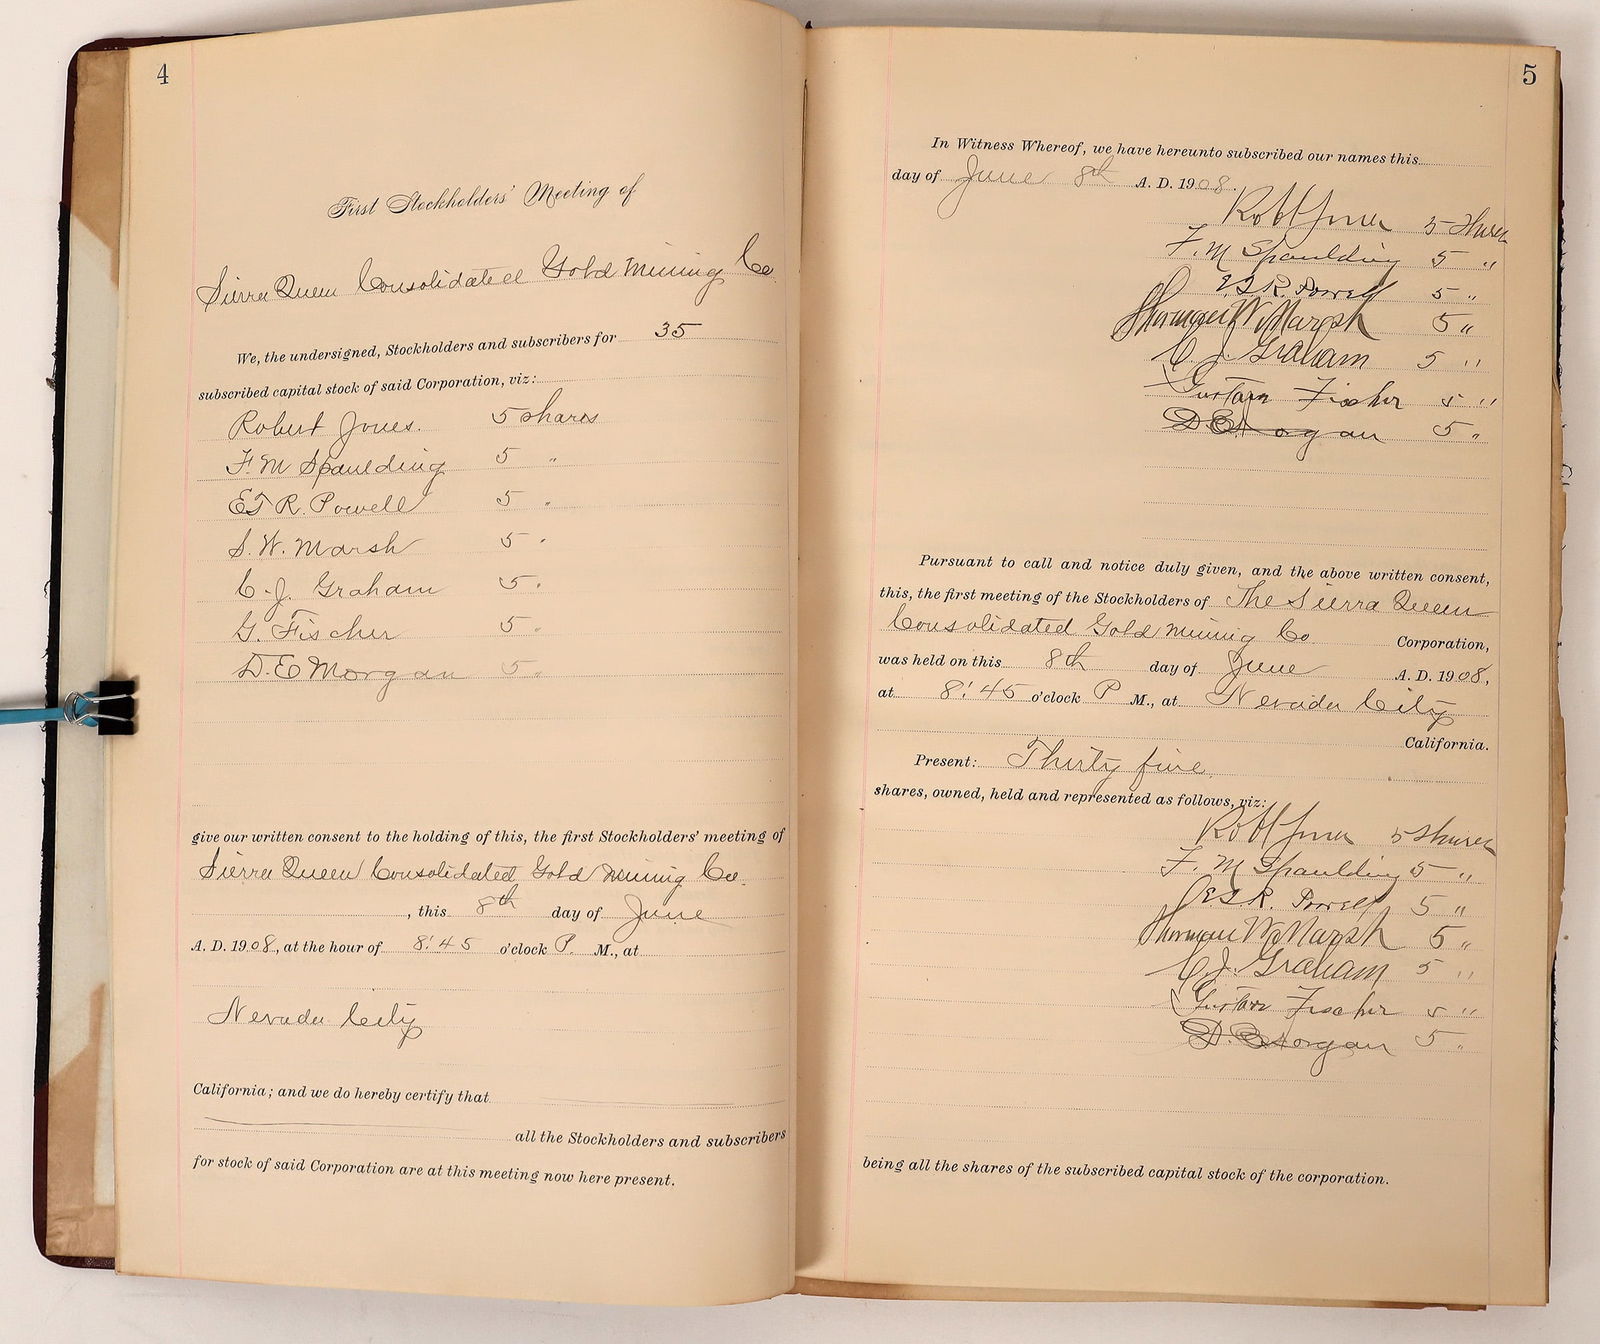 4
First Stockholders' Meeting of
Sierra Queen Consolidated Gold Mining Co.
We, the undersigned, Stockholders and subscribers for 35
subscribed capital stock of said Corporation, viz:
Robert Jones. 5 shares
F. M Spaulding 5 "
E T R. Powell 5 "
S. W. Marsh 5 "
C. J. Graham 5 "
G. Fischer 5 "
D. E Morgan 5 "
give our written consent to the holding of this, the first Stockholders' meeting of
Sierra Queen Consolidated Gold Mining Co.
, this 8th day of June
A. D. 1908, at the hour of 8:45 o'clock P. M., at
Nevada City
California; and we do hereby certify that
all the Stockholders and subscribers
for stock of said Corporation are at this meeting now here present.
5
In Witness Whereof, we have hereunto subscribed our names this
day of June 8th A. D. 1908.
Robt Jones 5 Shares
F. M Spaulding 5 "
E T R. Powell 5 "
Sherman W. Marsh 5 "
C. J. Graham 5 "
Gustave Fischer 5 "
D E Morgan 5 "
Pursuant to call and notice duly given, and the above written consent,
this, the first meeting of the Stockholders of The Sierra Queen
Consolidated Gold Mining Co Corporation,
was held on this 8th day of June A. D. 1908,
at 8:45 o'clock P M., at Nevada City
California.
Present: Thirty five
shares, owned, held and represented as follows, viz:
Robt Jones 5 Shares
F. M Spaulding 5 "
E T R. Powell 5 "
Sherman W Marsh 5 "
C. J. Graham 5 "
Gustave Fischer 5 "
D. E Morgan 5 "
being all the shares of the subscribed capital stock of the corporation.